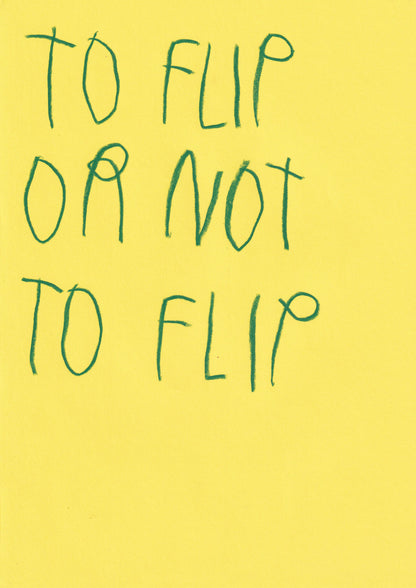 TO FLIP
OR NOT
TO FLIP